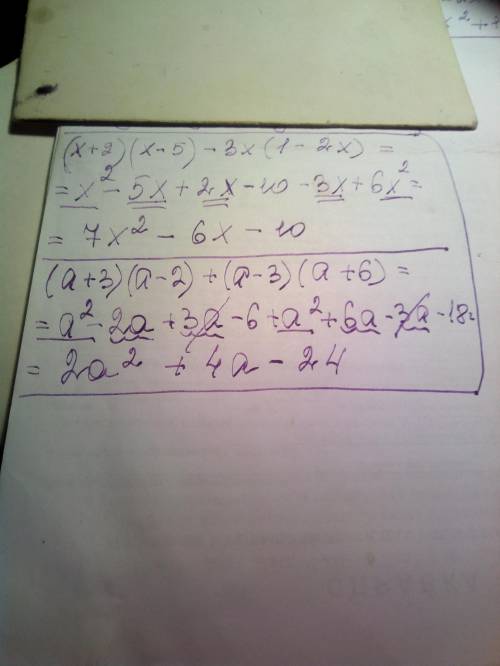 (x+2)(x-5)-3x(1-2x)=
=x²-5x+2x-10-3x+6x²=
=7x²-6x-10
(a+3)(a-2)+(a-3)(a+6)=
=a²-2a+3a-6+a²+6a-3a-18=
=2a²+4a-24